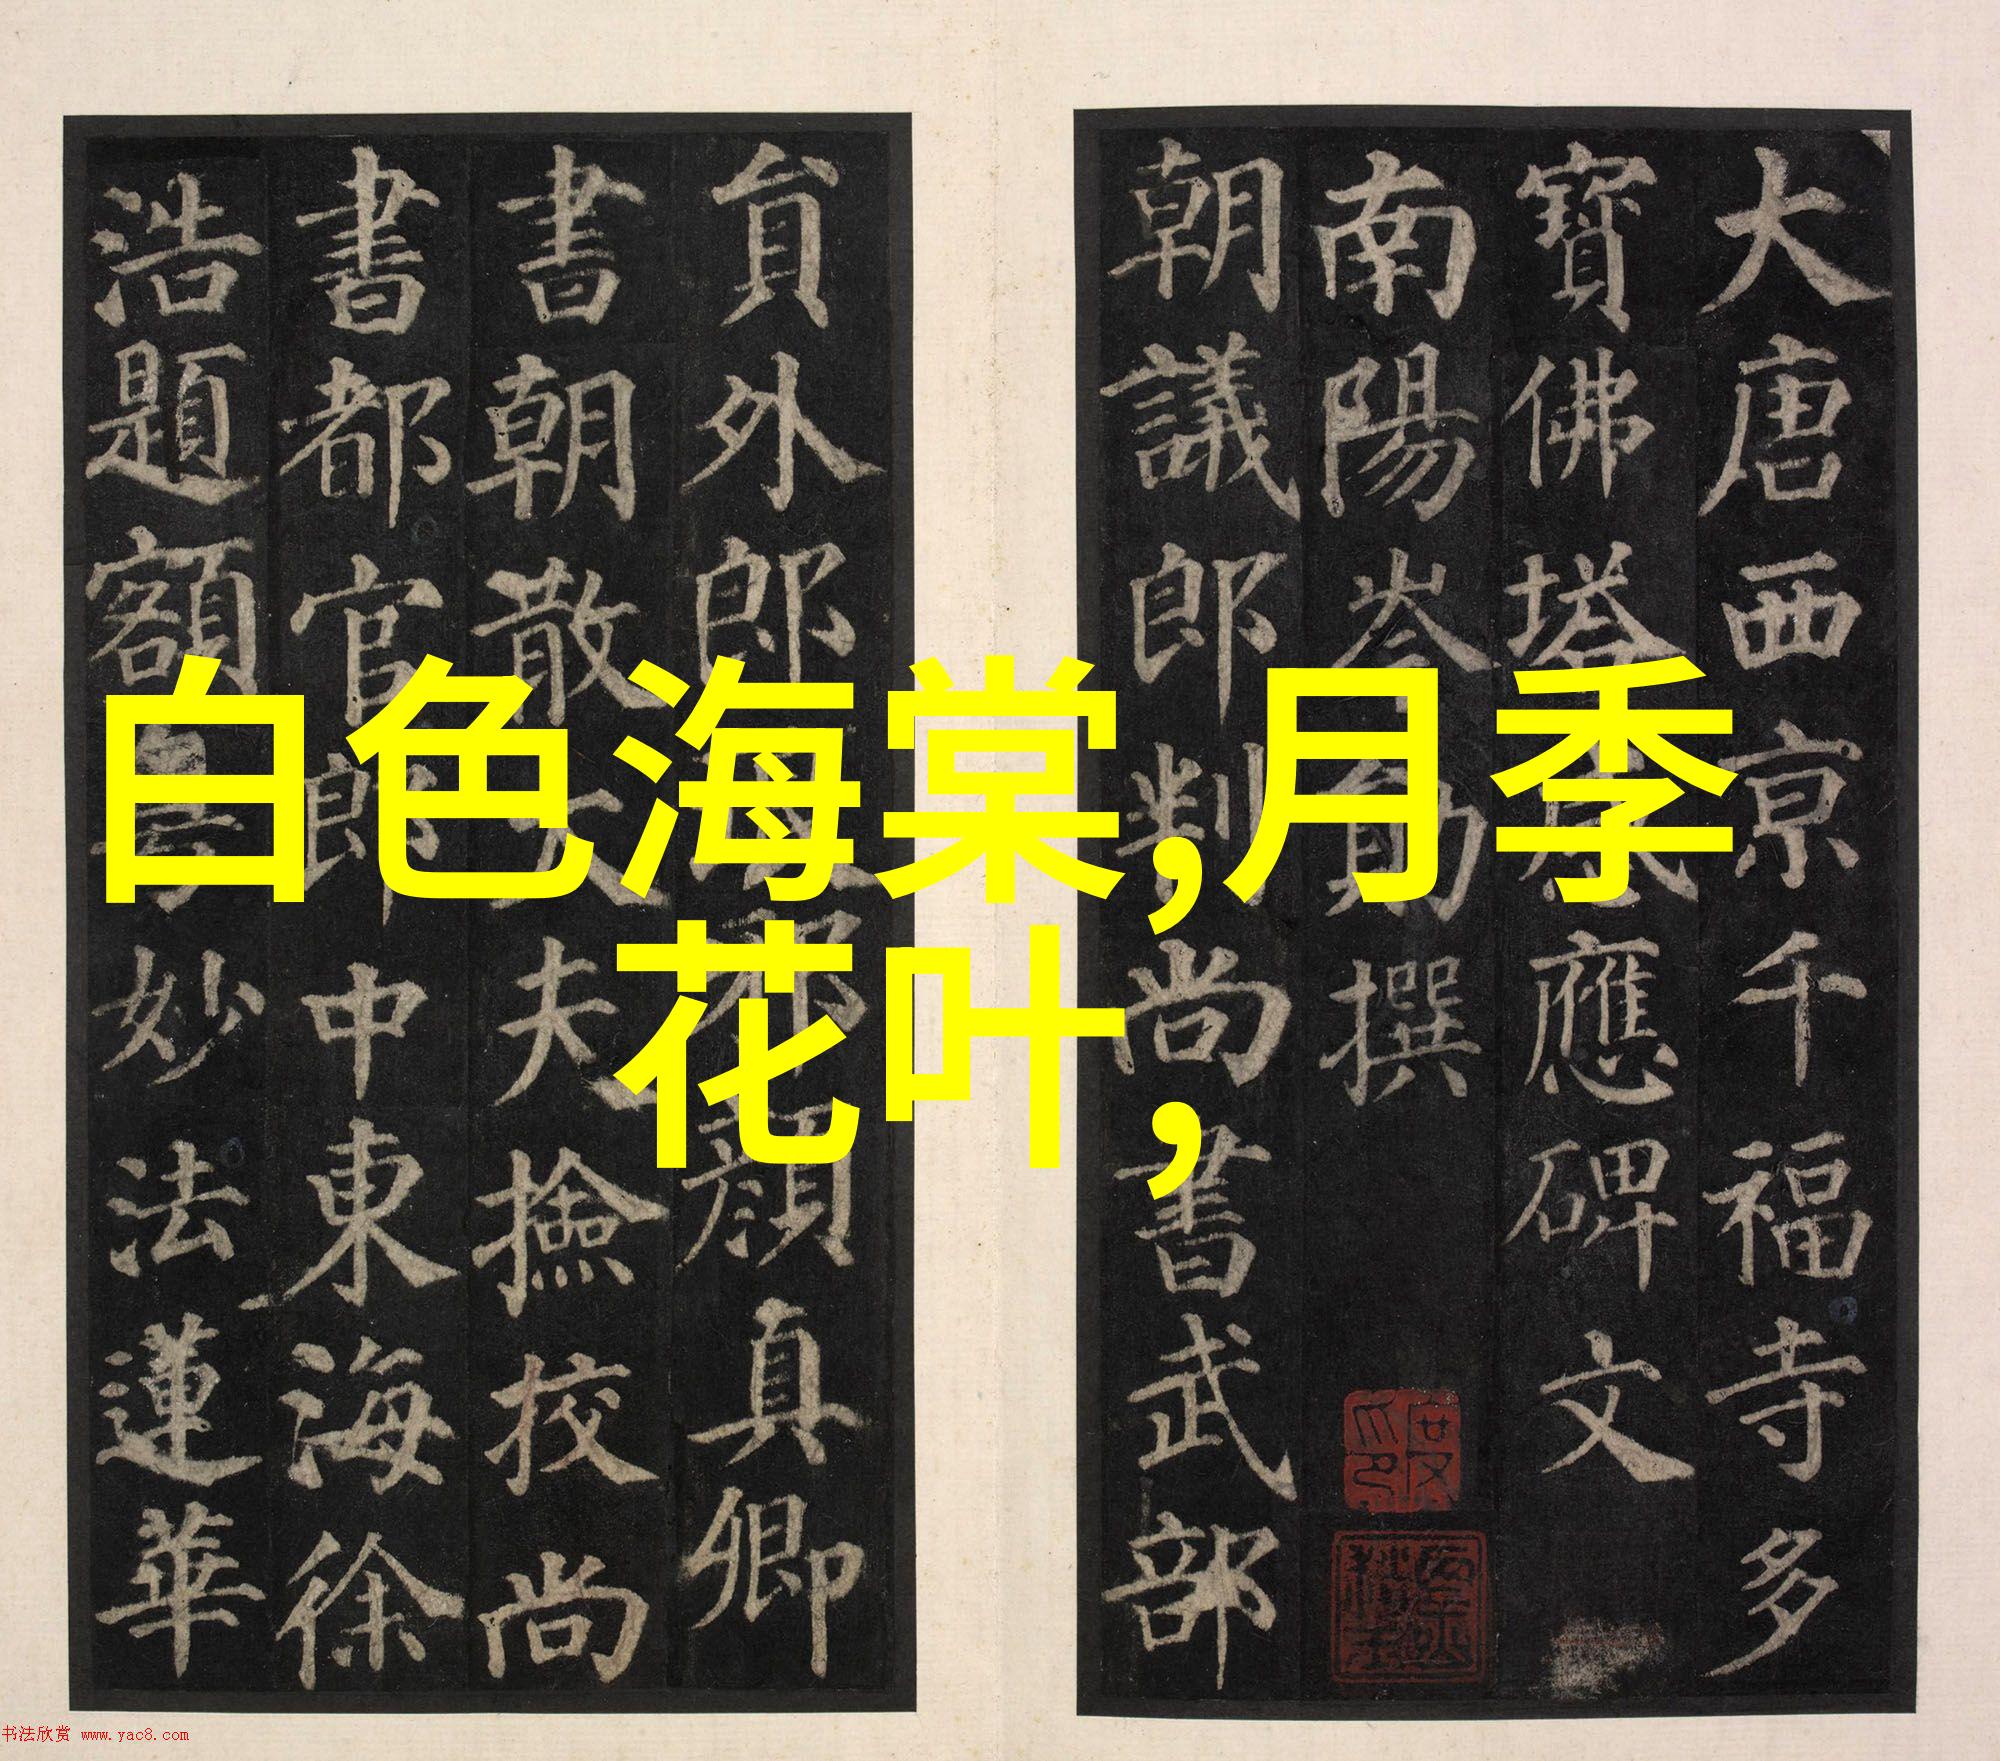 大唐西京千福寺多
寶佛塔感應碑文
南陽岑勛撰
朝議郎判尚書武部
員外郎
顏真卿
書朝散大夫撿校尚
書都官郎中東海徐
浩題額
妙法蓮華
白色海棠,月季
花叶,
书法欣赏 www.yac8.com